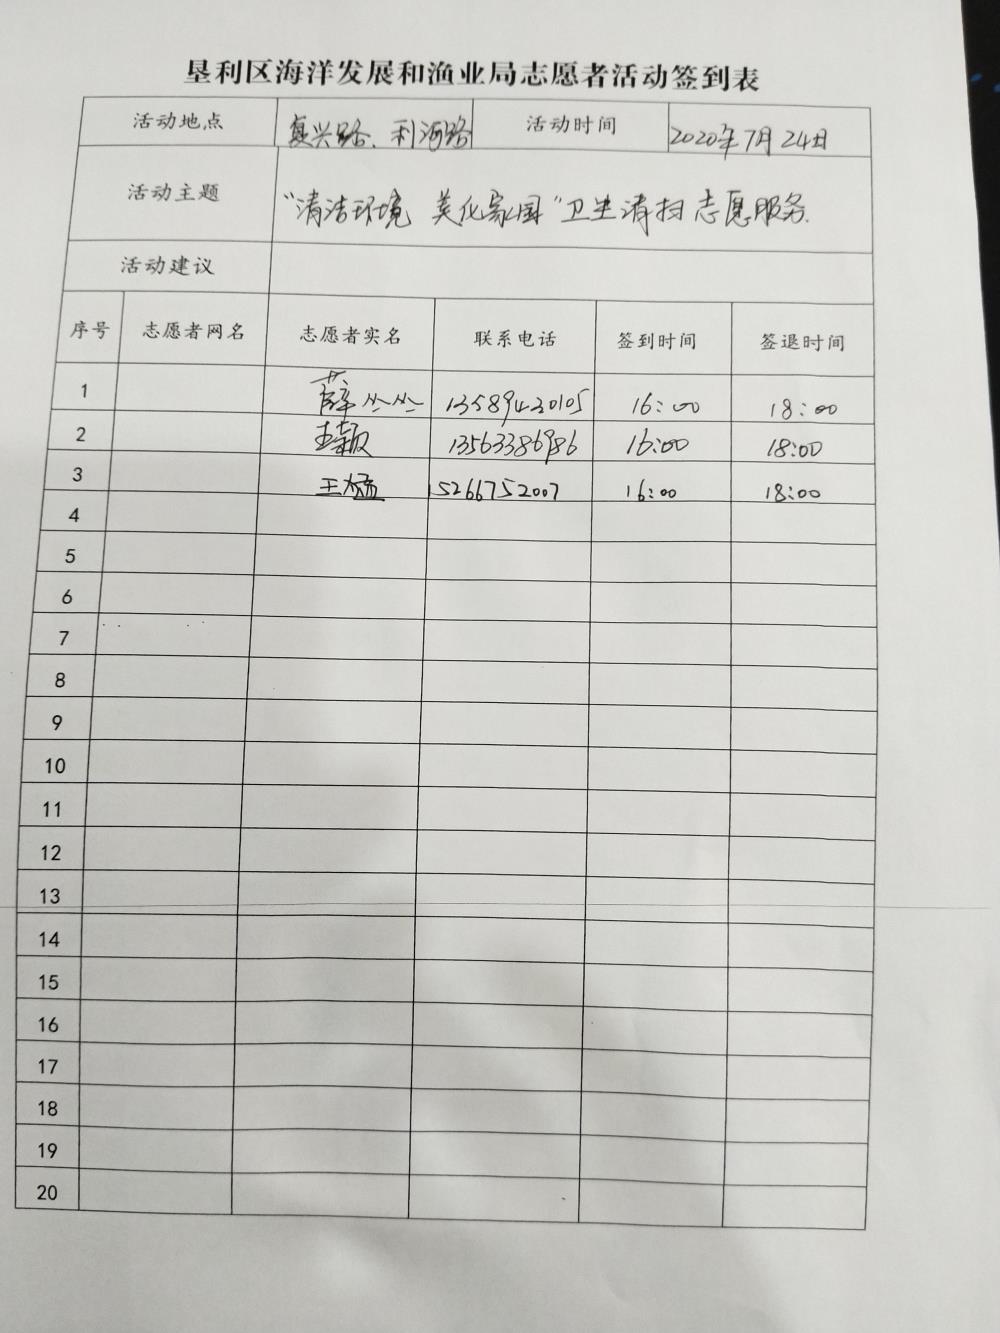 垦利区海洋发展和渔业局志愿者活动签到表
活动地点 复兴路、利河路 活动时间 2020年7月24日
活动主题 "清洁环境 美化家园"卫生清扫志愿服务.
活动建议
序号 志愿者网名 志愿者实名 联系电话 签到时间 签退时间
1 薛丛丛 13589430105 16:00 18:00
2 13563386986 16:00 18:00
3 王 15266752007 16:00 18:00
4
5
6
7
8
9
10
11
12
13
14
15
16
17
18
19
20